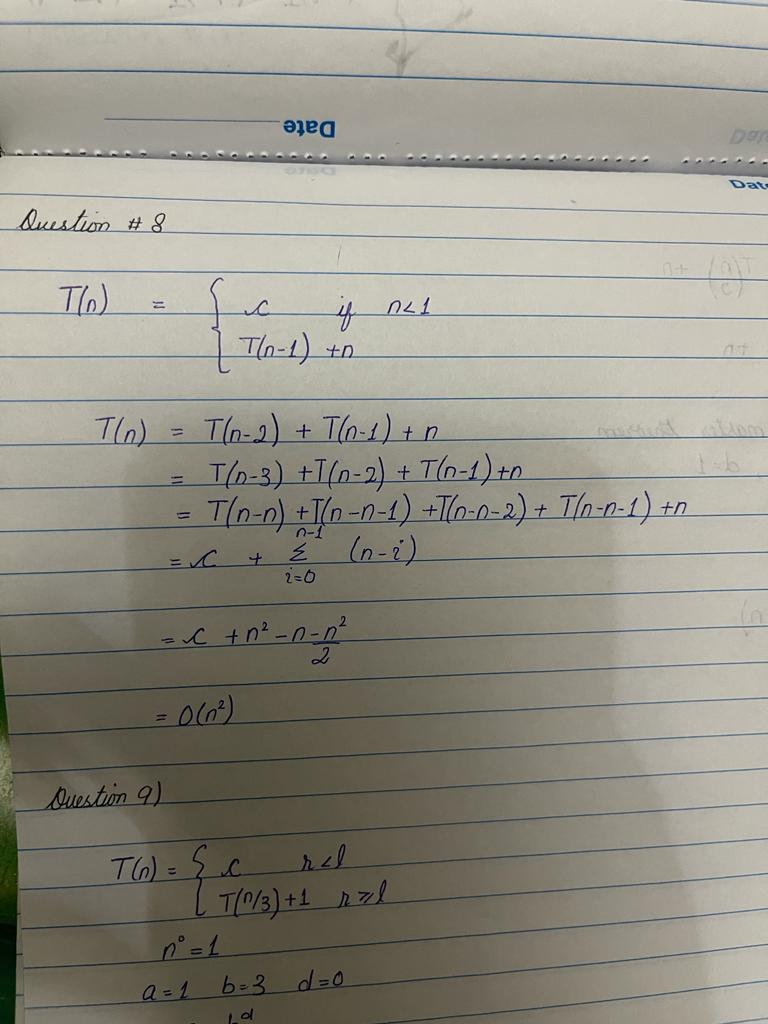 Date
Date
Question # 8
T(n) = { c if n<1
T(n-1) +n
T(n) = T(n-2) + T(n-1) + n
= T(n-3) +T(n-2) + T(n-1) +n
= T(n-n) +T(n-n-1) +T(n-n-2) + T(n-n-1) +n
= c + n-1 Σ i=0 (n-i)
= c + n² - n - n²/2
= O(n²)
Question 9)
T(n) = { c r<l
T(n/3) +1 r≥l
n° = 1
a=1 b=3 d=0